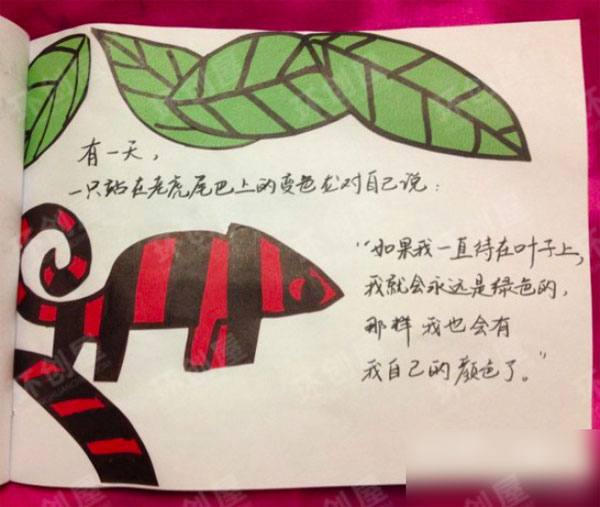 有一天，
一只站在老虎尾巴上的变色龙对自己说：
“如果我一直待在叶子上，
我就会永远是绿色的，
那样我也会有
我自己的颜色了。”
环创屋